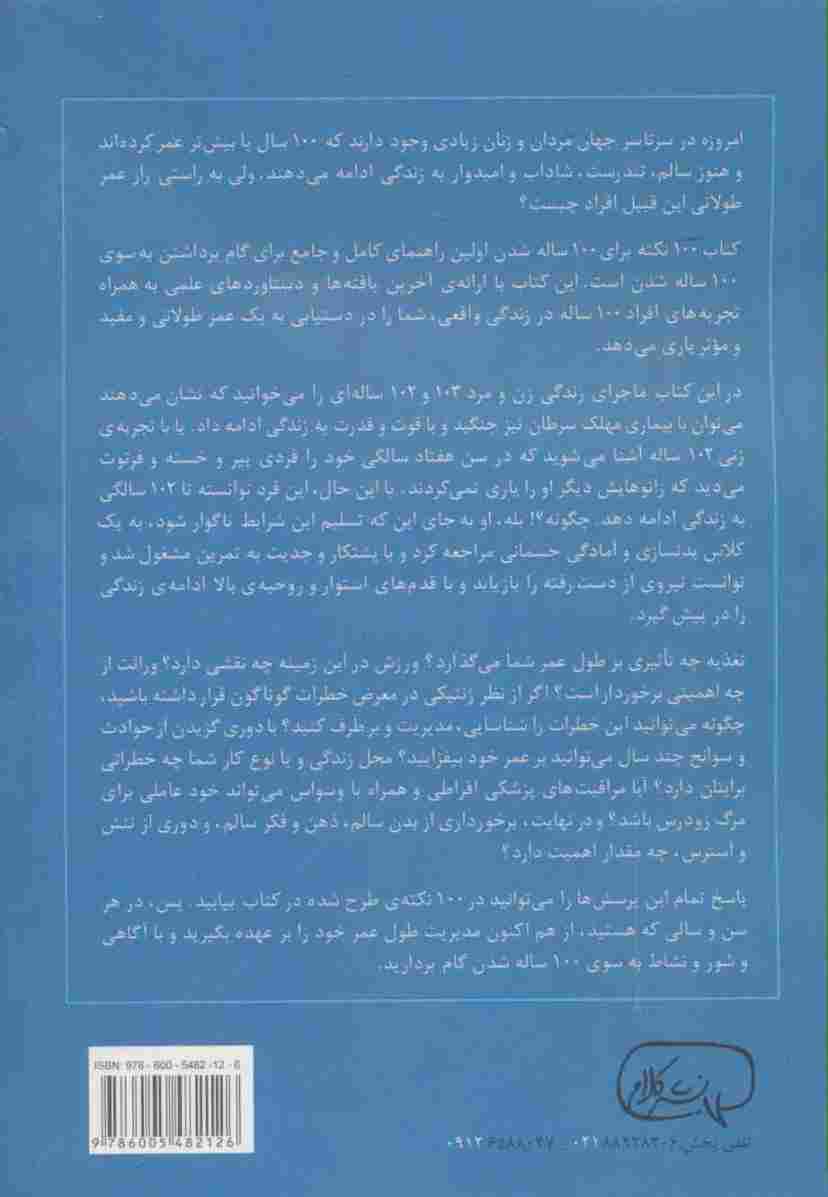 امروزه در سرتاسر جهان مردان و زنان زیادی وجود دارند که ۱۰۰ سال یا بیش‌تر عمر کرده‌اند
و هنوز سالم، تندرست، شاداب و امیدوار به زندگی ادامه می‌دهند. ولی به راستی راز عمر
طولانی این قبیل افراد چیست؟
کتاب ۱۰۰ نکته برای ۱۰۰ ساله شدن اولین راهنمای کامل و جامع برای گام برداشتن به سوی
۱۰۰ ساله شدن است. این کتاب با ارائه‌ی آخرین یافته‌ها و دستاوردهای علمی به همراه
تجربه‌های افراد ۱۰۰ ساله در زندگی واقعی، شما را در دستیابی به یک عمر طولانی و مفید
و مؤثر یاری می‌دهد.
در این کتاب ماجرای زندگی زن و مرد ۱۰۳ و ۱۰۲ ساله‌ای را می‌خوانید که نشان می‌دهند
می‌توان با بیماری مهلک سرطان نیز جنگید و با قوت و قدرت به زندگی ادامه داد. یا با تجربه‌ی
زنی ۱۰۲ ساله آشنا می‌شوید که در سن هفتاد سالگی خود را فردی پیر و خسته و فرتوت
می‌دید که زانوهایش دیگر او را یاری نمی‌کردند. با این حال، این فرد توانسته تا ۱۰۲ سالگی
به زندگی ادامه دهد. چگونه؟! بله، او به جای این که تسلیم این شرایط ناگوار شود، به یک
کلاس بدنسازی و آمادگی جسمانی مراجعه کرد و با پشتکار و جدیت به تمرین مشغول شد و
توانست نیروی از دست رفته را بازیابد و با قدم‌های استوار و روحیه‌ی بالا ادامه‌ی زندگی
را در پیش گیرد.
تغذیه چه تأثیری بر طول عمر شما می‌گذارد؟ ورزش در این زمینه چه نقشی دارد؟ وراثت از
چه اهمیتی برخوردار است؟ اگر از نظر ژنتیکی در معرض خطرات گوناگون قرار داشته باشید،
چگونه می‌توانید این خطرات را شناسایی، مدیریت و برطرف کنید؟ با دوری گزیدن از حوادث
و سوانح چند سال می‌توانید بر عمر خود بیفزایید؟ محل زندگی و یا نوع کار شما چه خطراتی
برایتان دارد؟ آیا مراقبت‌های پزشکی افراطی و همراه با وسواس می‌تواند خود عاملی برای
مرگ زودرس باشد؟ و در نهایت، برخورداری از بدن سالم، ذهن و فکر سالم، و دوری از تنش
و استرس، چه مقدار اهمیت دارد؟
پاسخ تمام این پرسش‌ها را می‌توانید در ۱۰۰ نکته‌ی طرح شده در کتاب بیابید. پس، در هر
سن و سالی که هستید، از هم اکنون مدیریت طول عمر خود را بر عهده بگیرید و با آگاهی
و شور و نشاط به سوی ۱۰۰ ساله شدن گام بردارید.
ISBN: 978 - 600 - 5482 - 12 - 6
9 786005 482126
نشر کلام
تلفن پخش: